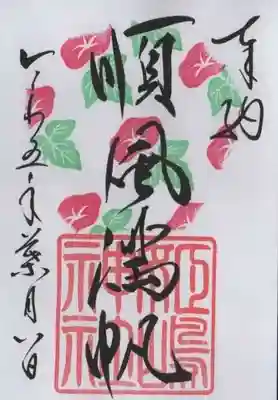 奉納
順風満帆
神社
令和五年葉月八日